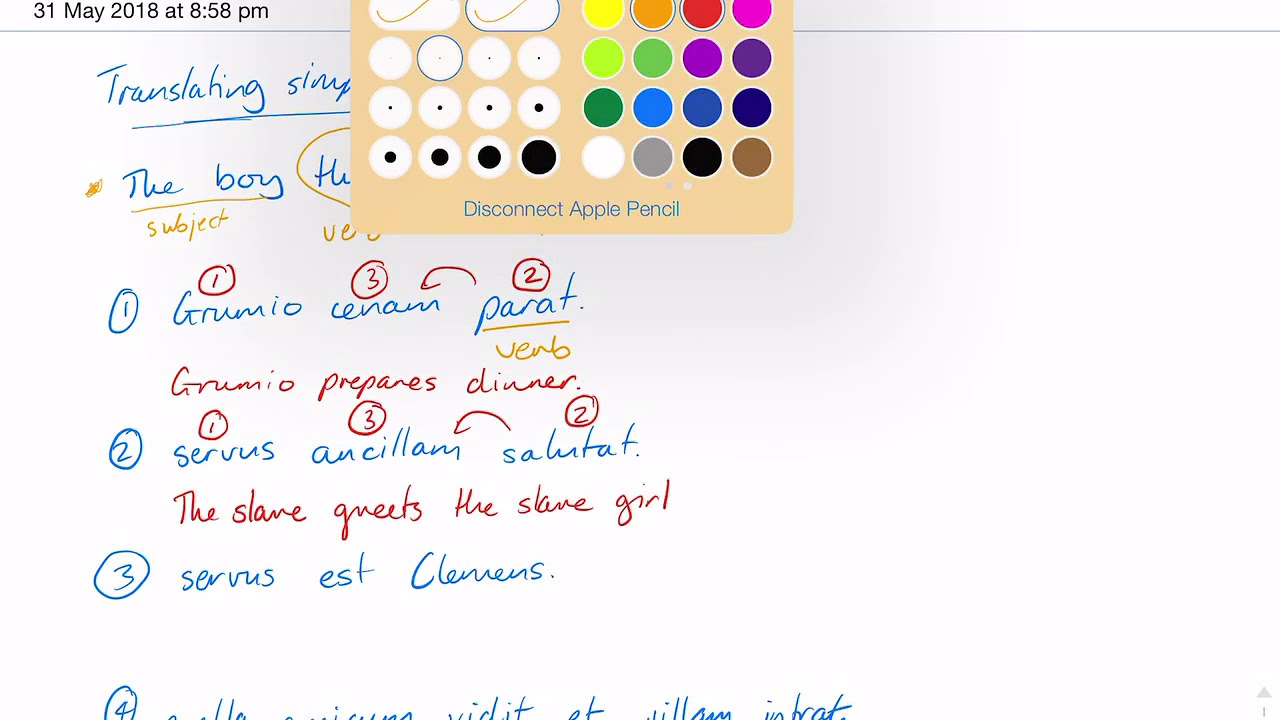 31 May 2018 at 8:58 pm
Translating
The boy
subject
Disconnect Apple Pencil
1 3 2
1 Grumio cenam parat.
verb
Grumio prepares dinner.
1 3 2
2 servus ancillam salutat.
The slave greets the slave girl
3 servus est Clemens.
4 amicum vidit et villam intrat.